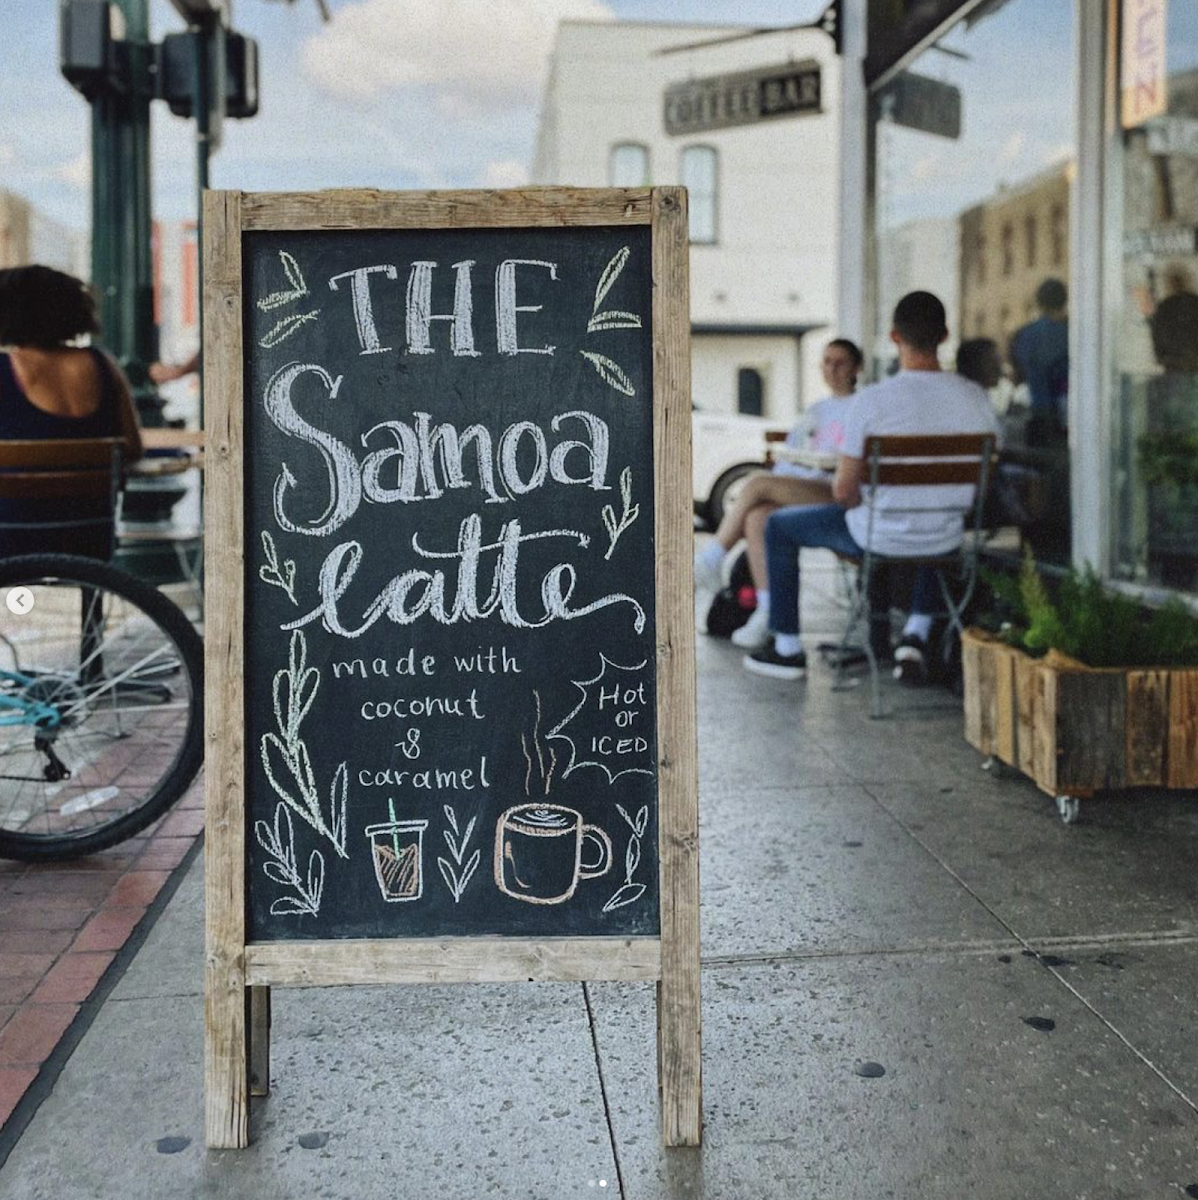 COFFEE BAR
THE
Samoa
latte
made with
coconut
&
caramel
Hot
or
ICED